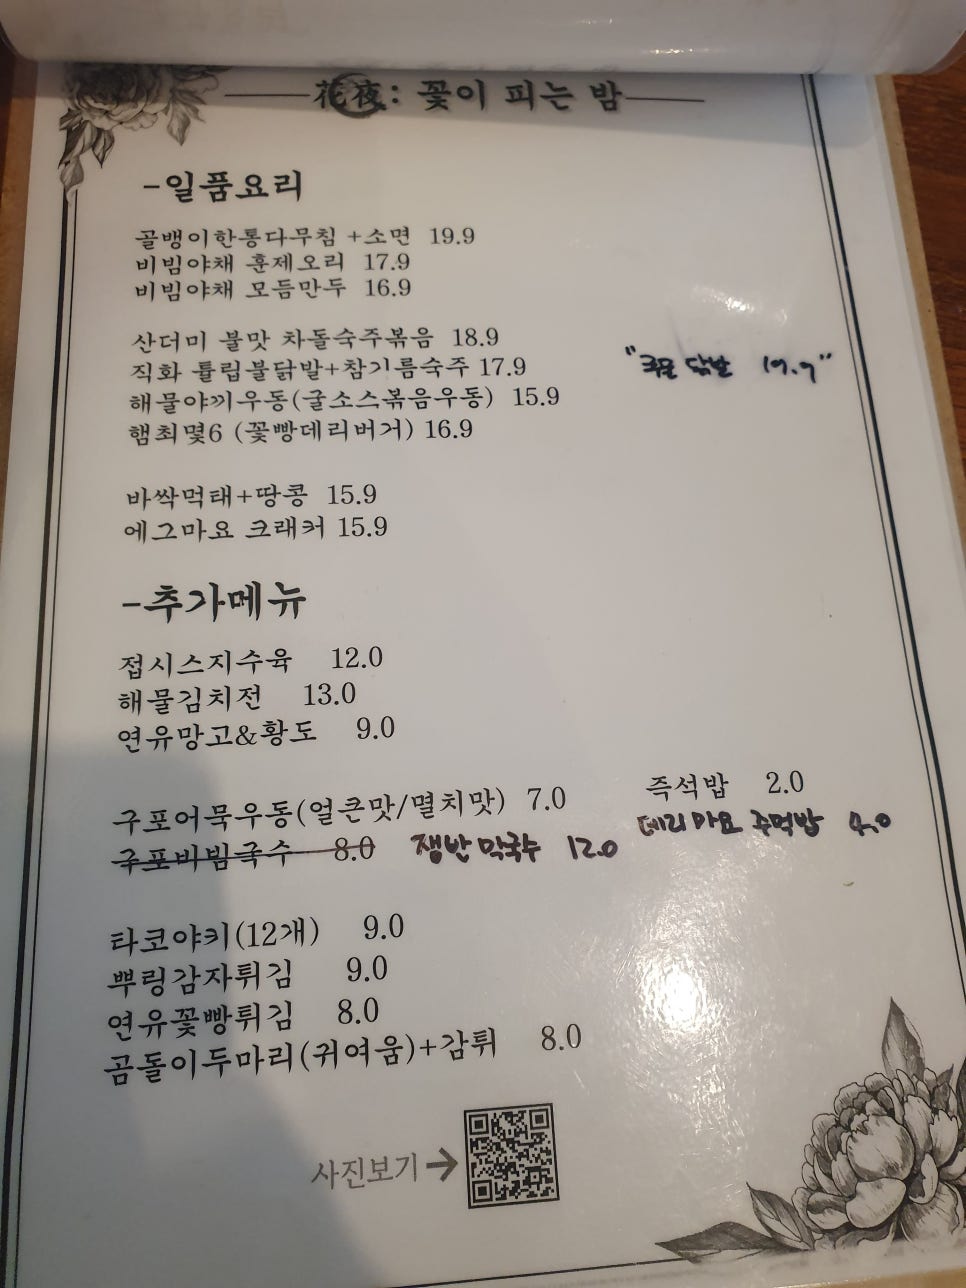 花夜: 꽃이 피는 밤
-일품요리
골뱅이한통다무침 +소면 19.9
비빔야채 훈제오리 17.9
비빔야채 모듬만두 16.9
산더미 불맛 차돌숙주볶음 18.9
직화 튤립불닭발+참기름숙주 17.9 "국물 닭발 19.9"
해물야끼우동(굴소스볶음우동) 15.9
햄최몇6 (꽃빵데리버거) 16.9
바싹먹태+땅콩 15.9
에그마요 크래커 15.9
-추가메뉴
접시스지수육 12.0
해물김치전 13.0
연유망고&황도 9.0
구포어묵우동(얼큰맛/멸치맛) 7.0 즉석밥 2.0
구포비빔국수 8.0 쟁반 막국수 12.0 데리마요 주먹밥 4.0
타코야키(12개) 9.0
뿌링감자튀김 9.0
연유꽃빵튀김 8.0
곰돌이두마리(귀여움)+감튀 8.0
사진보기→